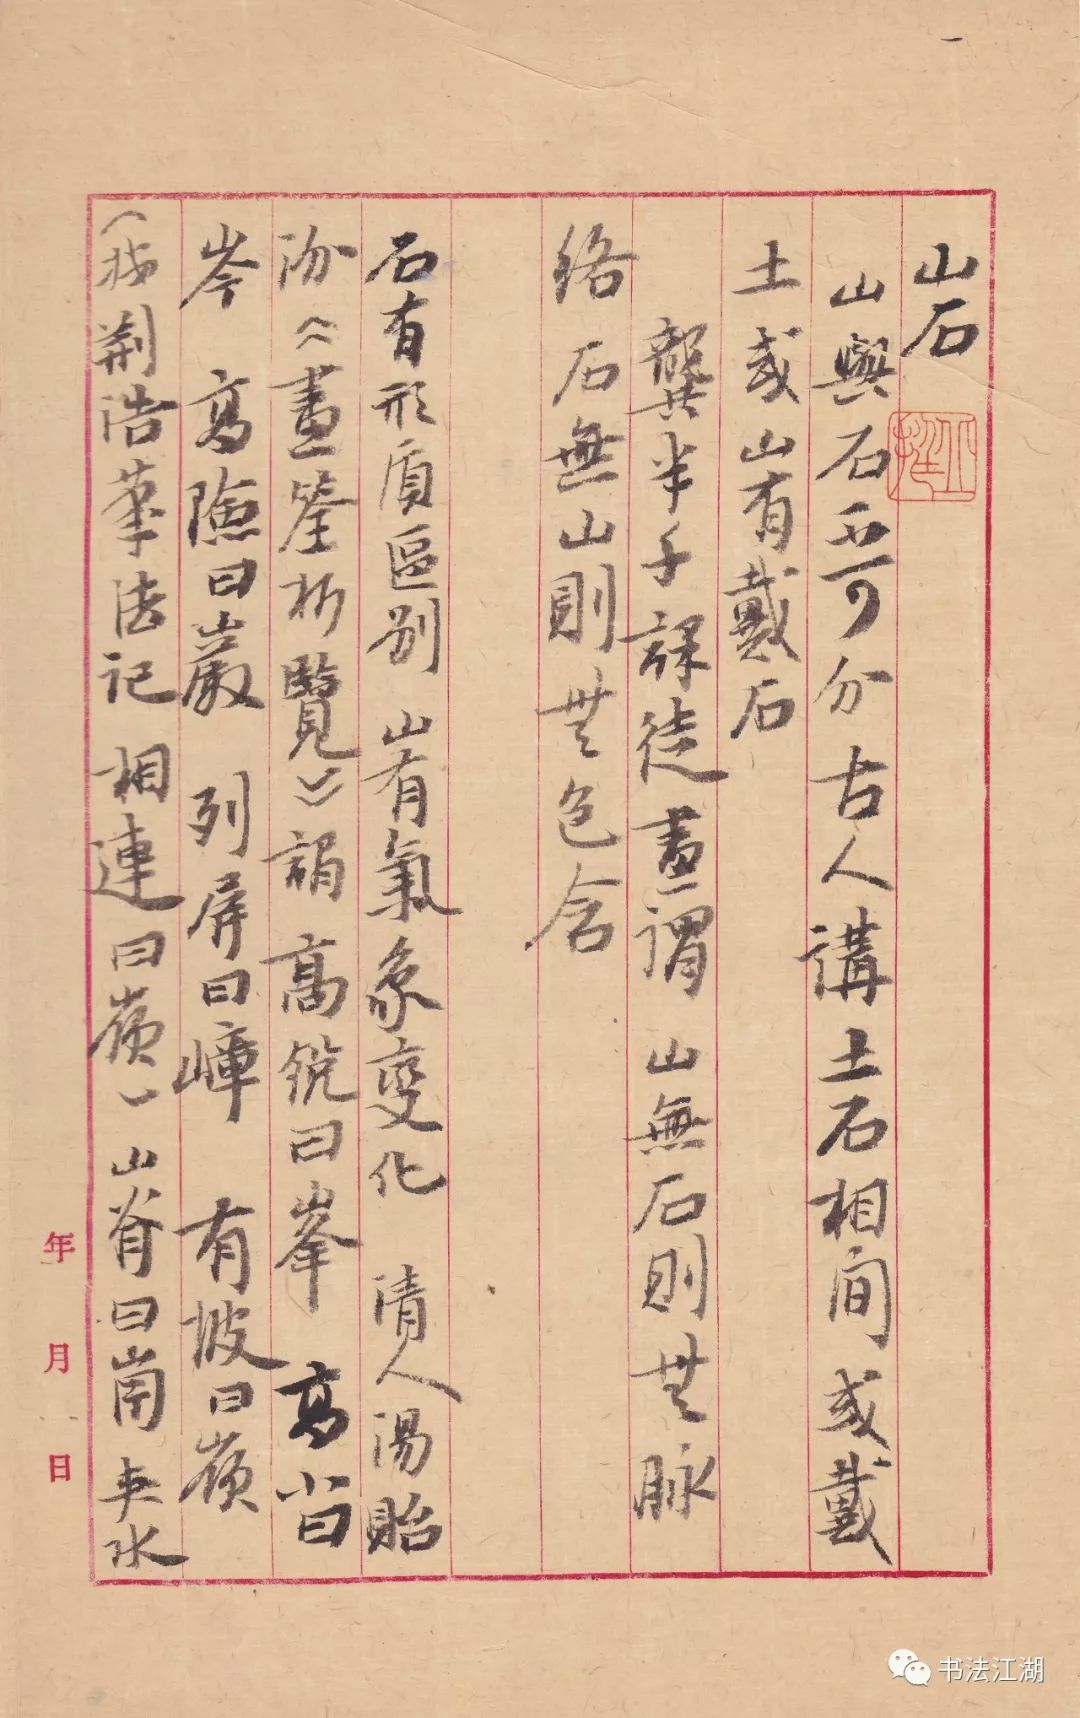 山石
山與石不可分 古人講土石相间 或戴
土或山有戴石
龔半千課徒畫謂 山無石則無脉
络 石無山則無包含
石有形质區别 山有氣象變化 清人湯貽
汾《畫筌析覽》謂 高锐曰峯 高小曰
岑 高險曰巖 列屏曰嶂 有坡曰嶺
荆浩筆法记 相連曰嶺 一山脊曰崗 夹水
年 月 日
书法江湖